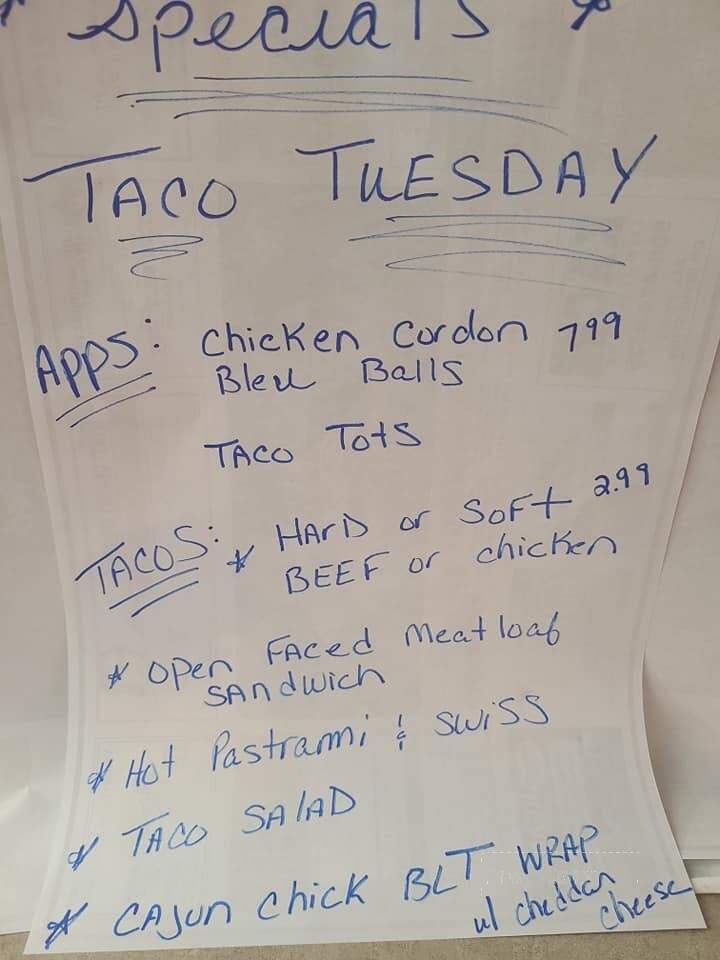 * Specials *
TACO TUESDAY
APPS: Chicken Cordon 799
Bleu Balls
TACO TOTS
TACOS: * HARD or SOFT 2.99
BEEF or chicken
* OPEN FACED Meatloaf
SANDWICH
* Hot Pastrami & SWISS
* TACO SALAD
* CAJUN Chick BLT WRAP
w/ cheddar
cheese